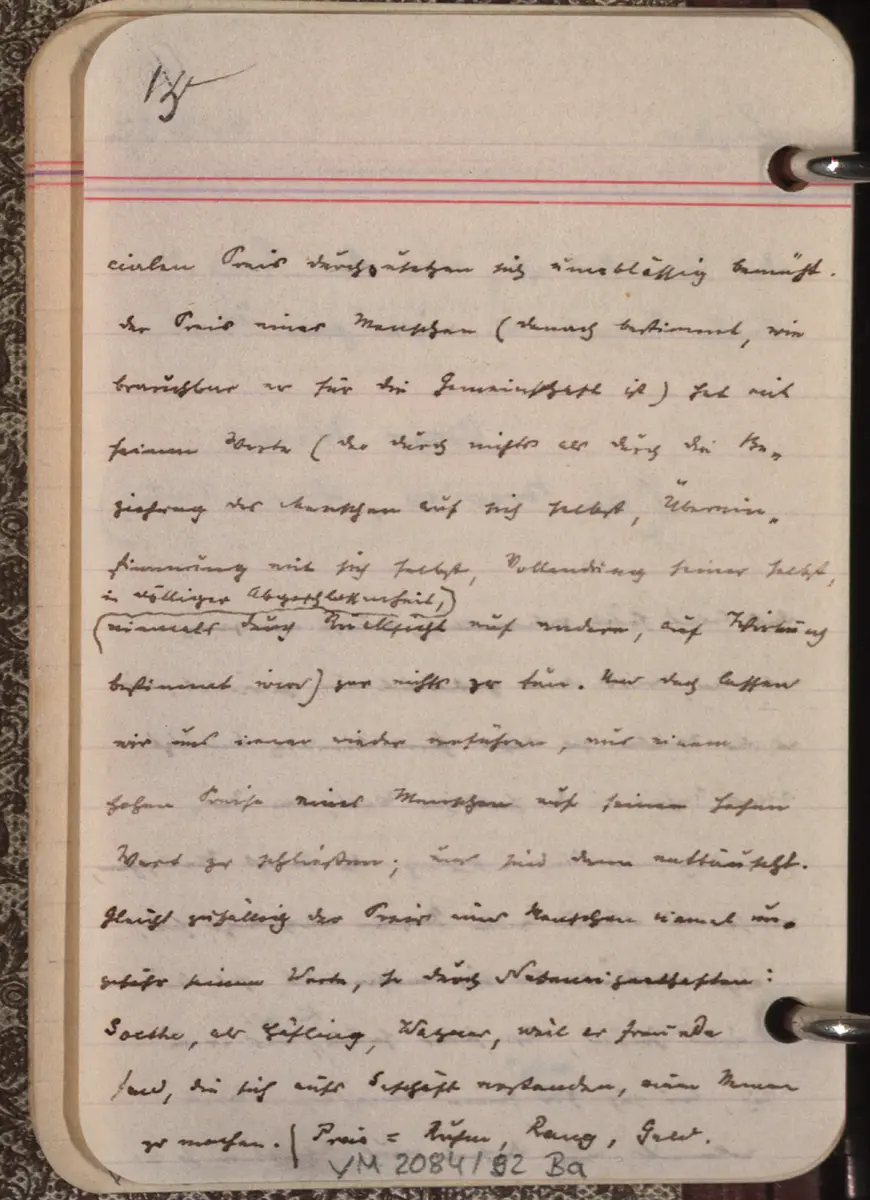 15
cialen Preis durchzusetzen sich unablässig bemüht.
der Preis eines Menschen (danach bestimmt, wie
brauchbar er für die Gemeinschaft ist) hat mit
seinem Werte (der durch nichts als durch die Be„
ziehung des Menschen auf sich selbst, Überein„
stimmung mit sich selbst, Vollendung seiner selbst,
in völliger Abgeschlossenheit,
(niemals durch Rücksicht auf andere, auf Wirkung
bestimmt wird) gar nichts zu tun. Und doch lassen
wir uns immer wieder verführen, aus einem
hohen Preise eines Menschen auf seinen hohen
Wert zu schließen; und sind dann enttäuscht.
Gleicht zufällig der Preis eines Menschen einmal un„
gefähr seinem Werte, so durch Nebeneigenschaften:
Goethe, als Höfling, Wagner, weil er Freunde
fand, die sich aufs Geschäft verstanden, einen Namen
zu machen. (Preis = Ruhm, Rang, Geld.
VM 2084/92 Ba